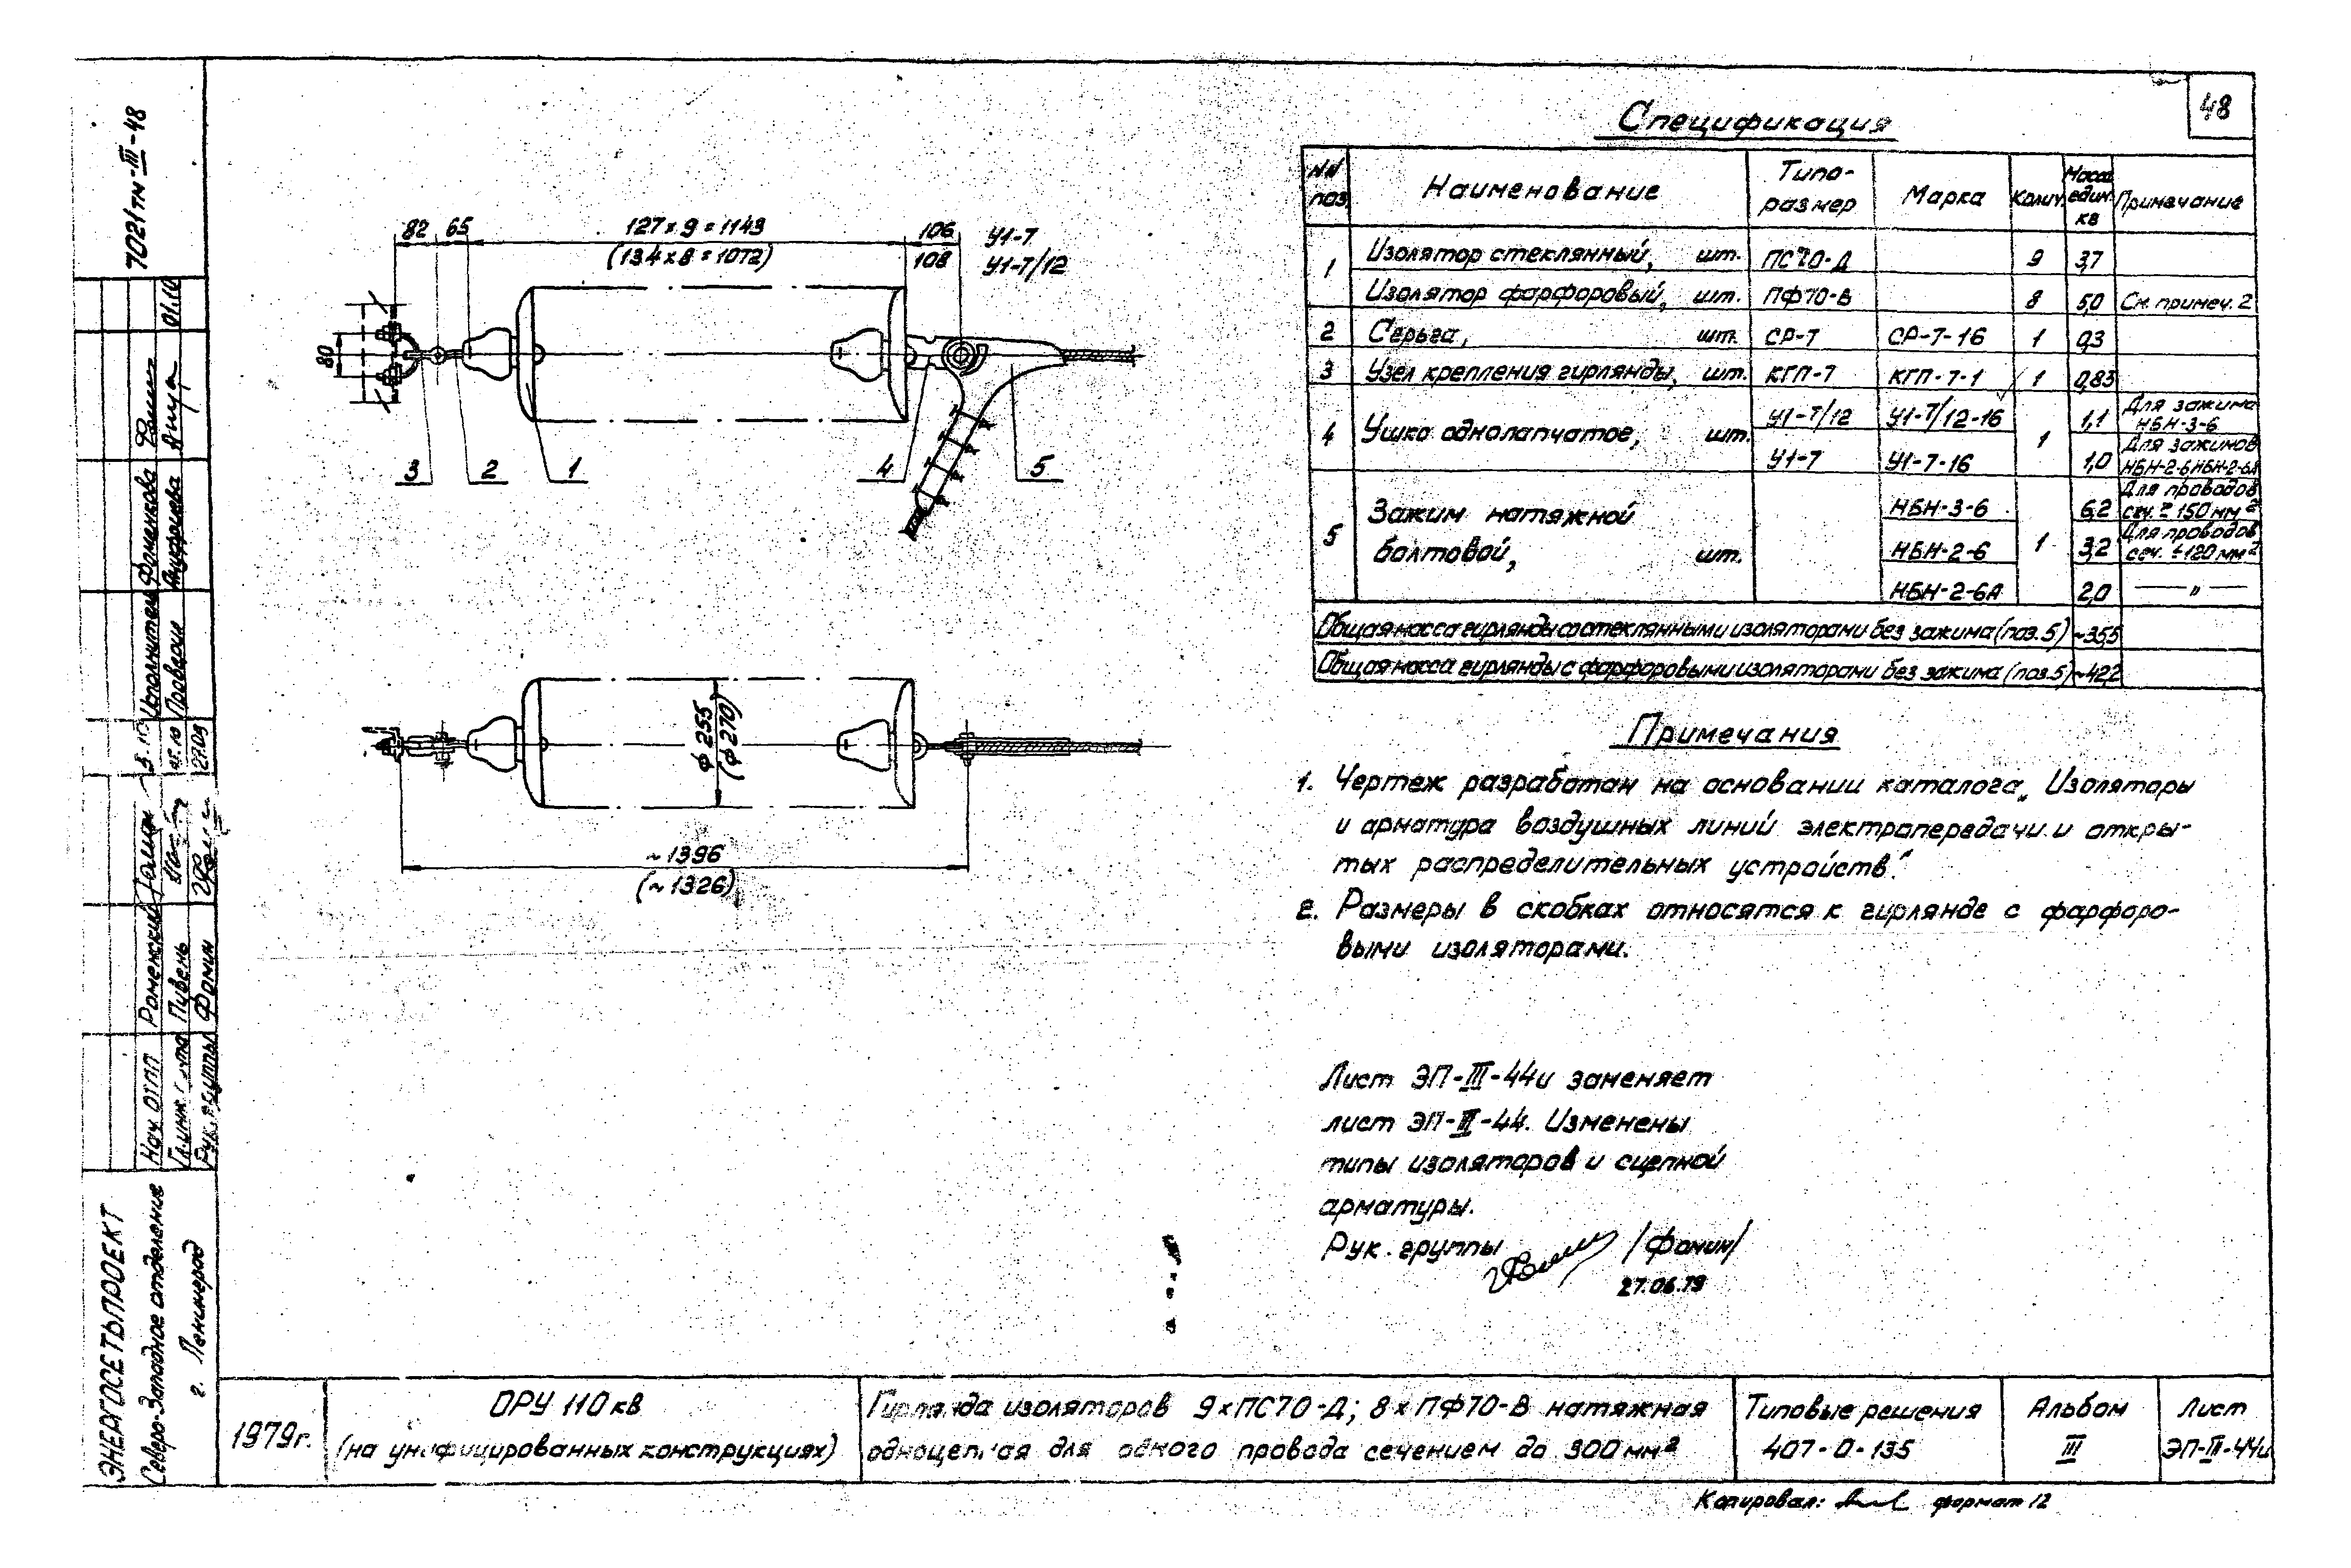 48
7021тм-III-48
Спецификация
NN поз.
Наименование
Типо-размер
Марка
Колич.
Масса един. кг
Примечание
1
Изолятор стеклянный, шт. ПС70-Д 9 3,7
Изолятор фарфоровый, шт. ПФ70-В 8 5,0 См. примеч. 2
2 Серьга, шт. СР-7 СР-7-16 1 0,3
3 Узел крепления гирлянды, шт. КГП-7 КГП-7-1 1 0,83
4 Ушко однолапчатое, шт. 1
У1-7/12 У1-7/12-16 1,1 Для зажима НБН-3-6
У1-7 У1-7-16 1,0 Для зажимов НБН-2-6, НБН-2-6А
5 Зажим натяжной
болтовой, шт. 1
НБН-3-6 6,2 Для проводов сеч. ≥ 150 мм²
НБН-2-6 3,2 Для проводов сеч. ≤ 120 мм²
НБН-2-6А 2,0 — " —
Общая масса гирлянды со стеклянными изоляторами без зажима (поз. 5) ~35,5
Общая масса гирлянды с фарфоровыми изоляторами без зажима (поз. 5) ~42,2
82 65 127 x 9 = 1143 106 У1-7
(134 x 8 = 1072) 108 У1-7/12
80
3 2 1 4 5
ф 255
(ф 270)
~1396
(~1326)
Примечания
1. Чертеж разработан на основании каталога „Изоляторы
и арматура воздушных линий электропередачи и откры-
тых распределительных устройств."
2. Размеры в скобках относятся к гирлянде с фарфоро-
выми изоляторами.
Лист ЭП-III-44и заменяет
лист ЭП-III-44. Изменены
типы изоляторов и сцепной
арматуры.
Рук. группы /Фомин/
27.06.79
ЭНЕРГОСЕТЬПРОЕКТ
Северо-Западное отделение
г. Ленинград
Нач ОТПП Роменский
Гл. инж. Пивень
Рук. группы Фомин 27.09
Исполнитель Фоменкова
Проверил
01.10
1979г.
ОРУ 110 кв
(на унифицированных конструкциях)
Гирлянда изоляторов 9×ПС70-Д; 8×ПФ70-В натяжная
одноцепная для одного провода сечением до 300 мм²
Типовые решения
407-0-135
Альбом
III
Лист
ЭП-III-44и
Копировал: формат 12